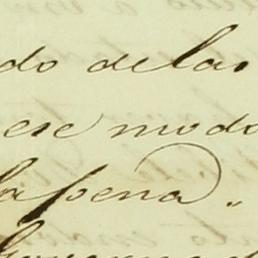 do delas
ese modo
la pena.